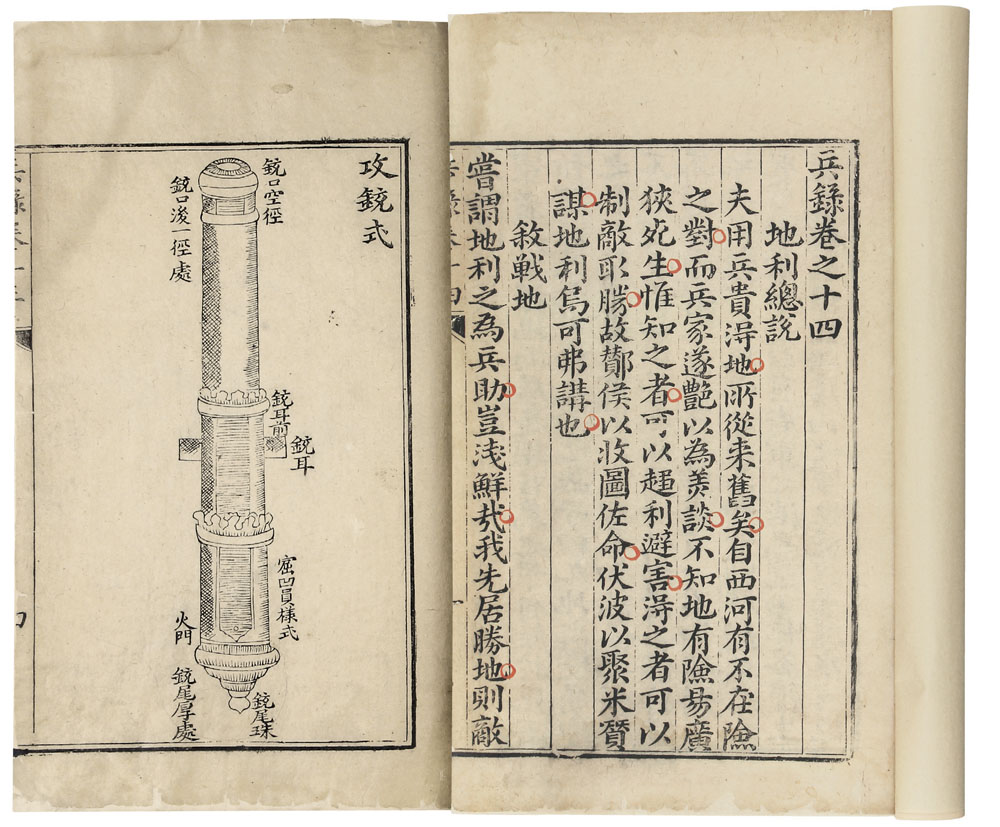 兵錄卷之十四
地利總說
夫用兵貴得地所從来舊矣自西河有不在險
之對而兵家遂艷以為羙談不知地有險易廣
狹死生惟知之者可以趨利避害淂之者可以
制敵取勝故酇侯以收圖佐命伏波以聚米質
謀地利烏可弗講也
敘戰地
嘗謂地利之為兵助豈浅鮮㢤我先居勝地則敵
攻銃式
銃口空徑
銃口後一徑處
銃耳前
銃耳
窟凹員様式
火門
銃尾厚處
銃尾珠